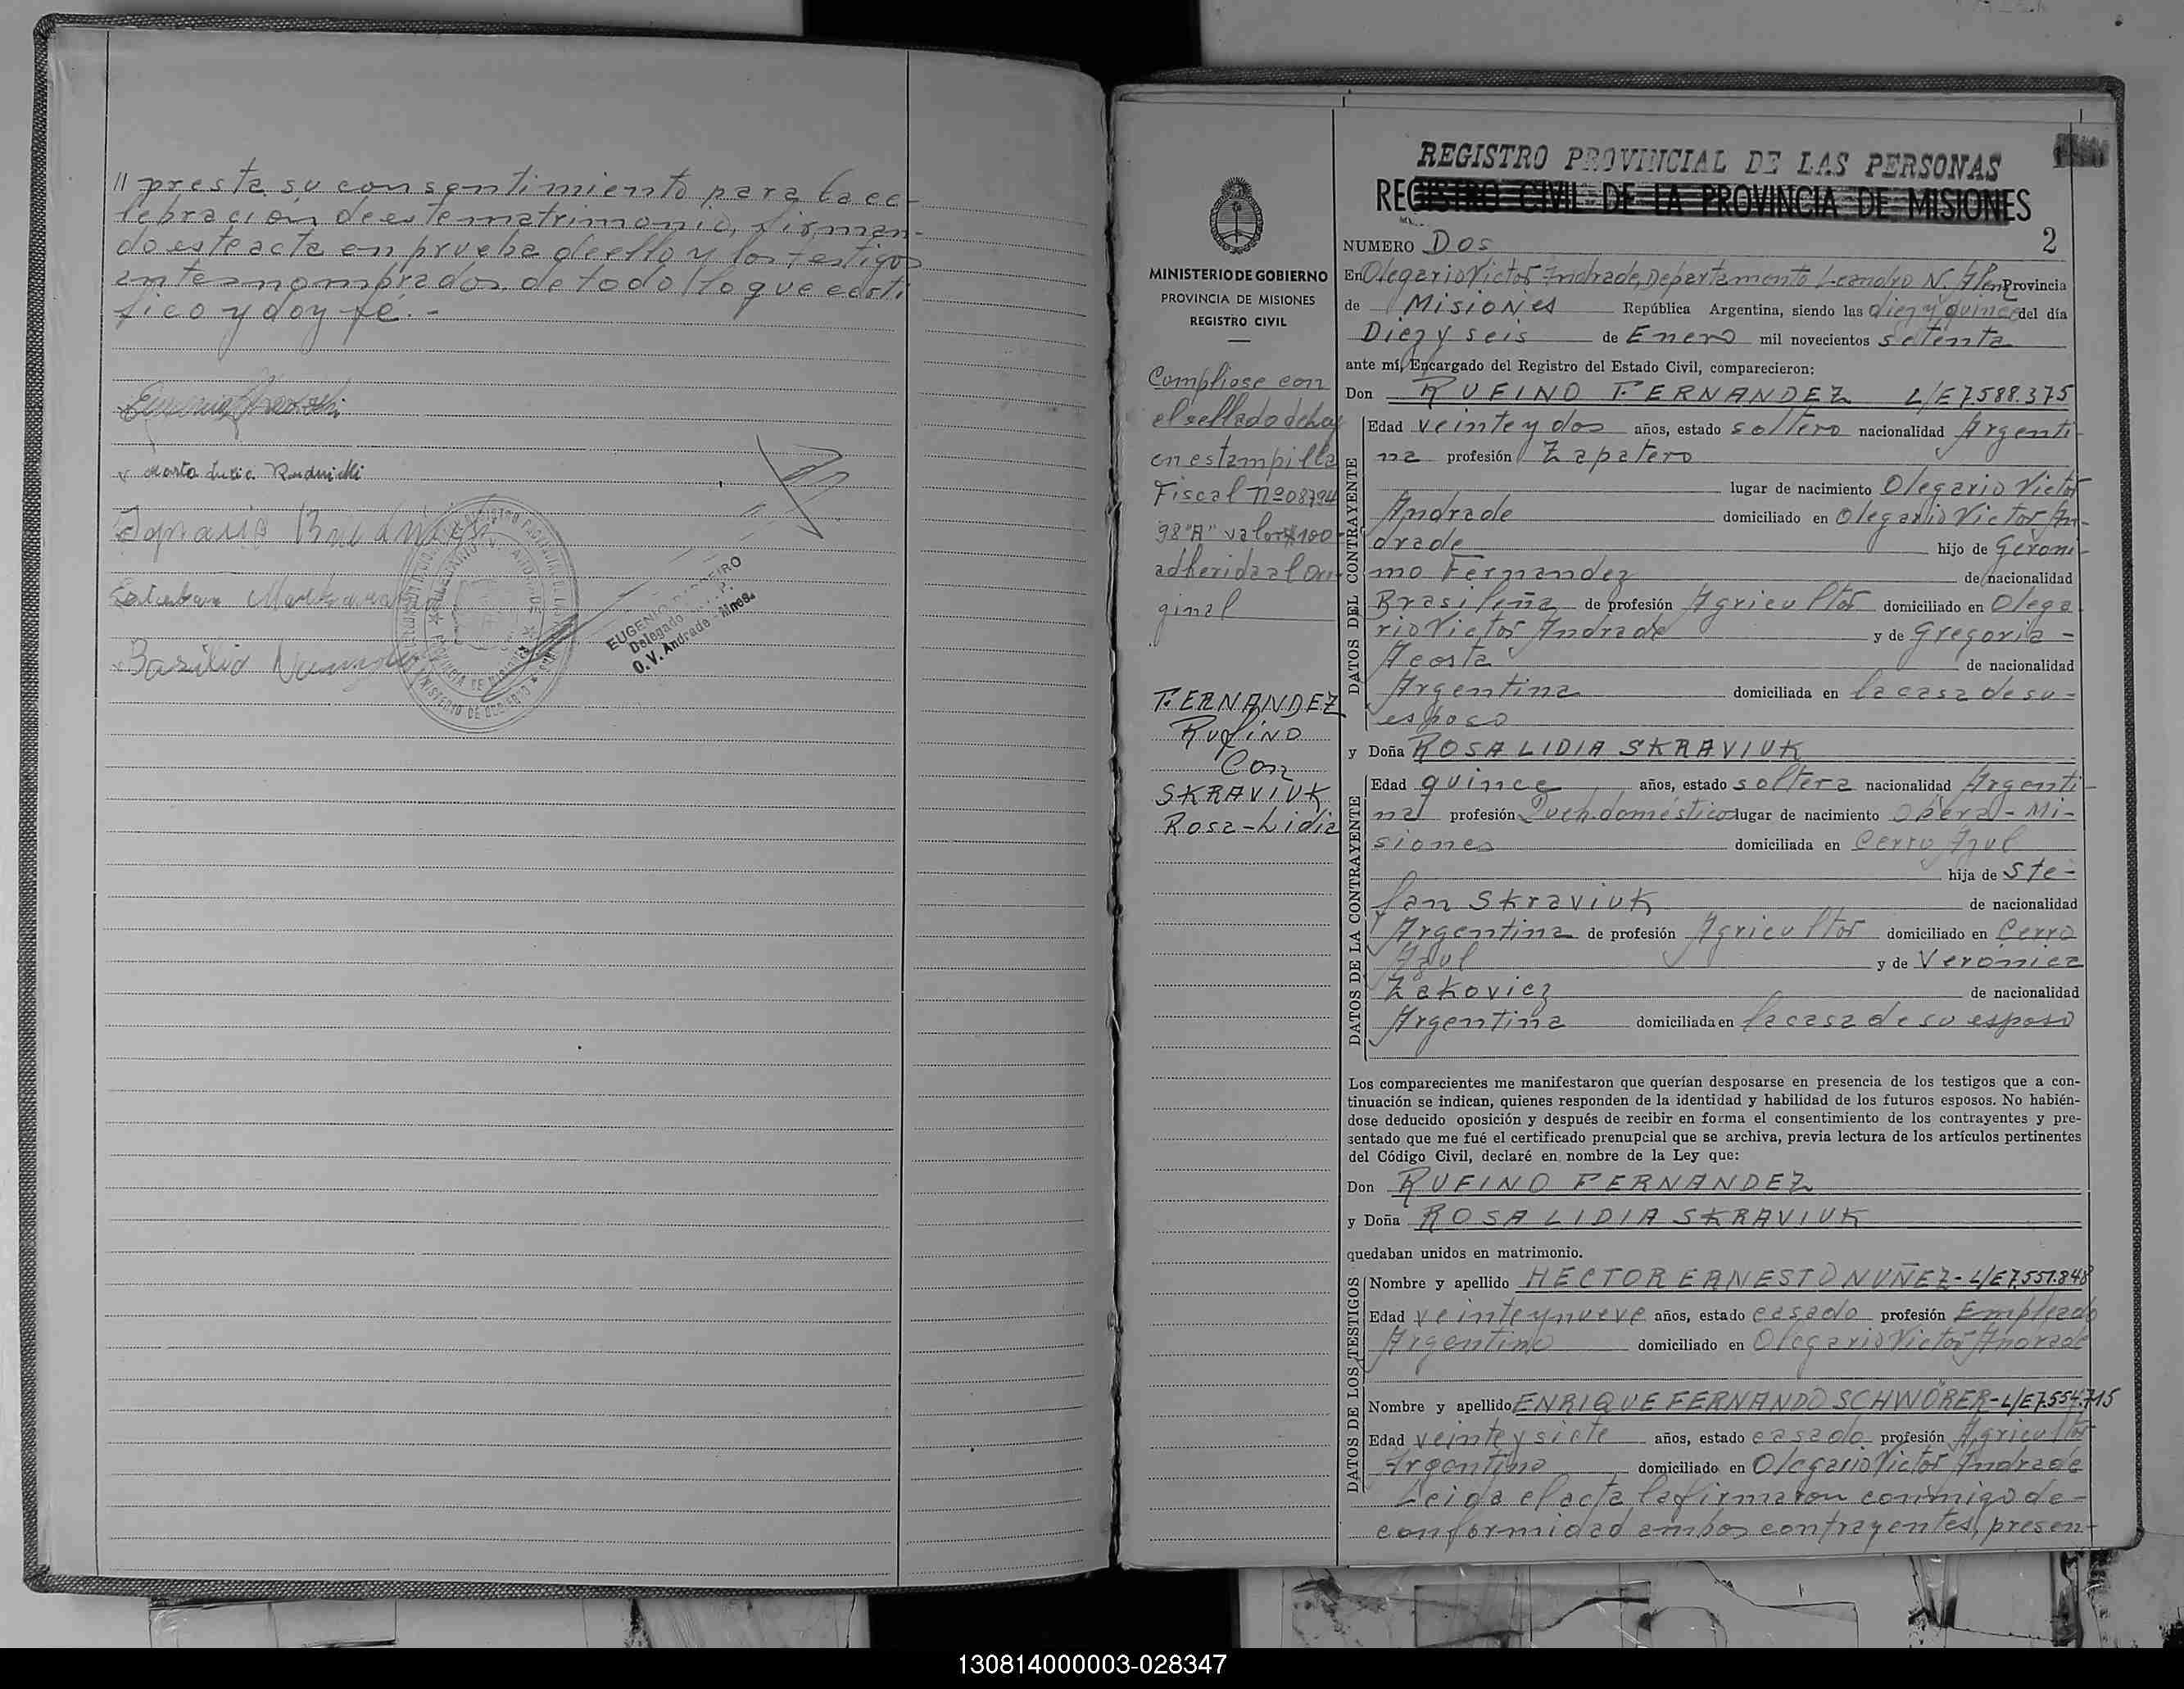 // presta su consentimiento para la ce-
lebración de este matrimonio, firman-
do este acta en prueba de ello y los testigos
antes nombrados de todo lo que certi-
fico y doy fé.-
Marta Lucia Rudnicki
Ignacio
Esteban
Basilio
EUGENIO
Delegado
O. V. Andrade - Mnes.
REGISTRO PROVINCIAL DE LAS PERSONAS
REGISTRO CIVIL DE LA PROVINCIA DE MISIONES
2
MINISTERIO DE GOBIERNO
PROVINCIA DE MISIONES
REGISTRO CIVIL
Cumpliose con
el sellado de ley
en estampilla
Fiscal nº 08794
98 "A" valor $100-
adherida al Ori-
ginal
FERNANDEZ
Rufino
Con
SKRAVIUK
Rosa-Lidia
NUMERO Dos
En Olegario Victor Andrade, Departamento Leandro N. Alem Provincia
de Misiones República Argentina, siendo las diez y quince del día
Diez y seis de Enero mil novecientos setenta
ante mí, Encargado del Registro del Estado Civil, comparecieron:
Don RUFINO FERNANDEZ L/E 7.588.375
DATOS DEL CONTRAYENTE
Edad veinte y dos años, estado soltero nacionalidad Argenti-
na profesión Zapatero
lugar de nacimiento Olegario Victor
Andrade domiciliado en Olegario Victor An-
drade hijo de Geroni-
mo Fernandez de nacionalidad
Brasileña de profesión Agricultor domiciliado en Olega
rio Victor Andrade y de Gregoria -
Acosta de nacionalidad
Argentina domiciliada en la casa de su -
esposo
y Doña ROSA LIDIA SKRAVIUK
DATOS DE LA CONTRAYENTE
Edad quince años, estado soltera nacionalidad Argenti-
na profesión Queh. doméstico lugar de nacimiento Oberá - Mi-
siones domiciliada en Cerro Azul
hija de Ste-
fan Skraviuk de nacionalidad
Argentina de profesión Agricultor domiciliado en Cerro
Azul y de Veronica
Zakovicz de nacionalidad
Argentina domiciliada en la casa de su esposo
Los comparecientes me manifestaron que querían desposarse en presencia de los testigos que a con-
tinuación se indican, quienes responden de la identidad y habilidad de los futuros esposos. No habién-
dose deducido oposición y después de recibir en forma el consentimiento de los contrayentes y pre-
sentado que me fué el certificado prenupcial que se archiva, previa lectura de los artículos pertinentes
del Código Civil, declaré en nombre de la Ley que:
Don RUFINO FERNANDEZ
y Doña ROSA LIDIA SKRAVIUK
quedaban unidos en matrimonio.
DATOS DE LOS TESTIGOS
Nombre y apellido HECTOR ERNESTO NUÑEZ - L/E 7.551.848
Edad veinte y nueve años, estado casado profesión Empleado
Argentino domiciliado en Olegario Victor Andrade
Nombre y apellido ENRIQUE FERNANDO SCHWÖRER - L/E 7.554.715
Edad veinte y siete años, estado casado profesión Agricultor
Argentino domiciliado en Olegario Victor Andrade
Leida el acta la firmaron conmigo de -
conformidad ambos contrayentes, presen-
130814000003-028347